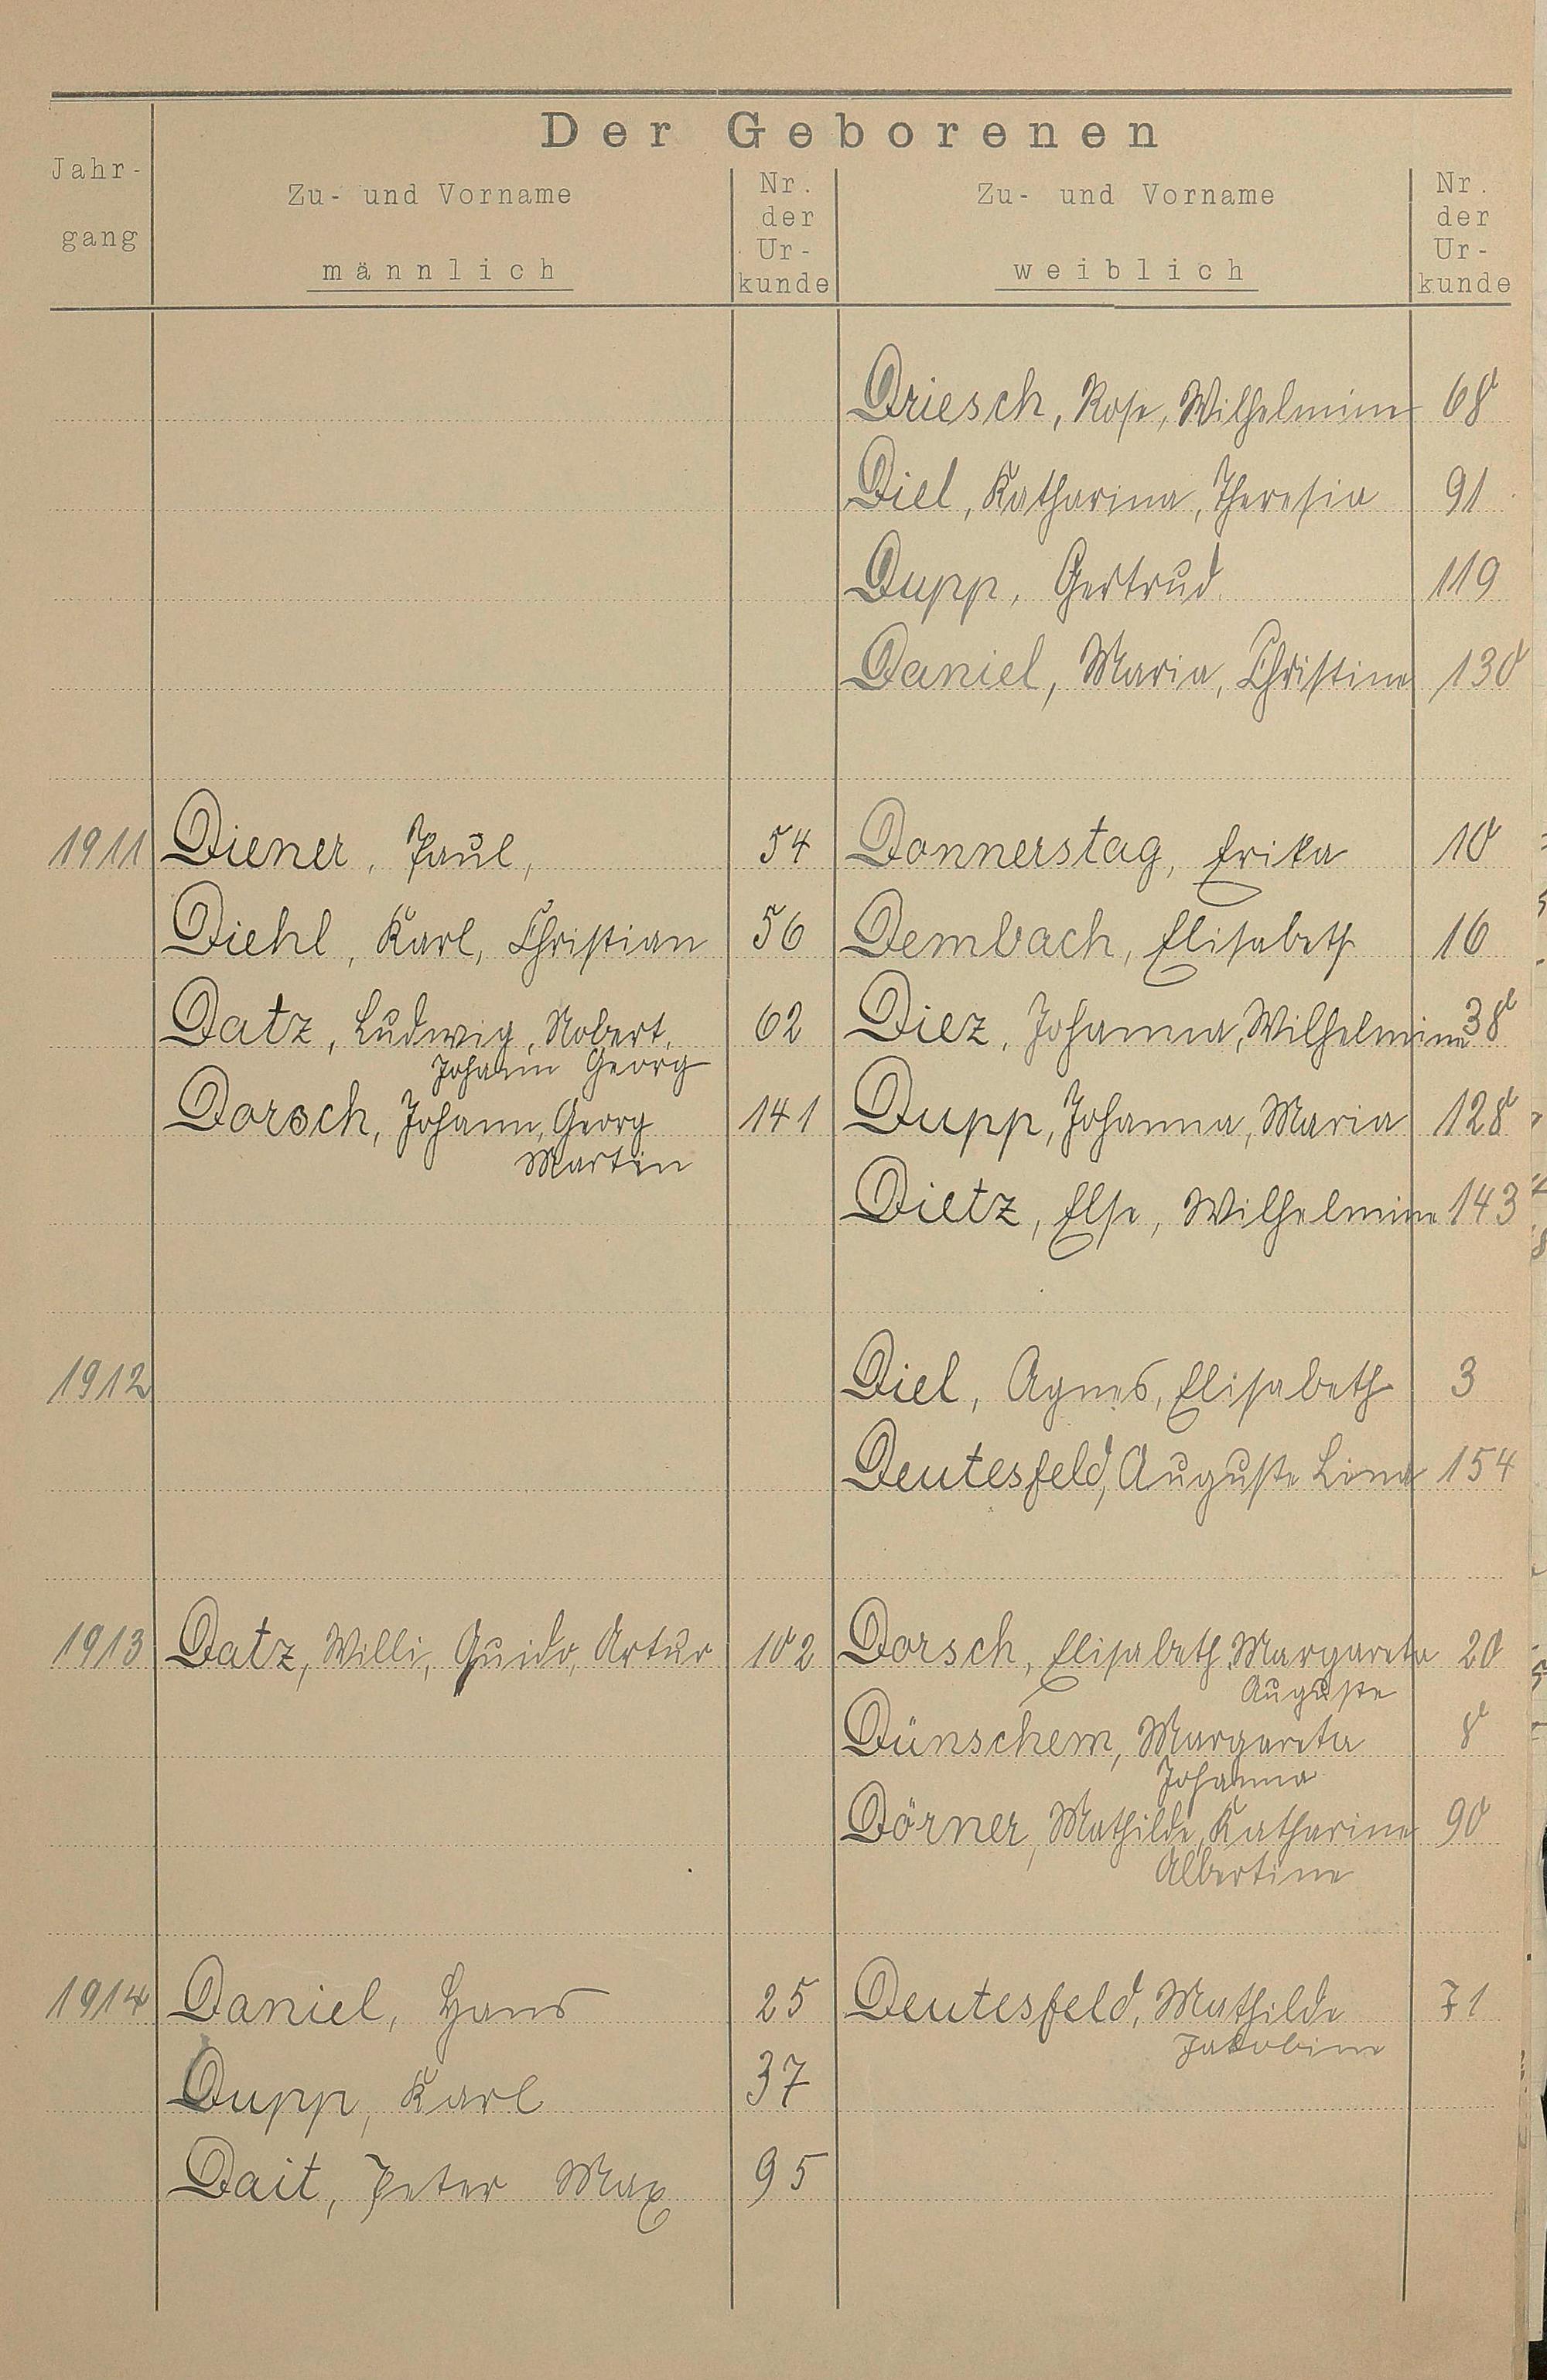 Der Geborenen
Jahr-
gang
Zu- und Vorname
männlich
Nr.
der
Ur-
kunde
Zu- und Vorname
weiblich
Nr.
der
Ur-
kunde
Driesch, Rose, Wilhelmine 68
Diel, Katharina, Theresia 91
Dupp, Gertrud 119
Daniel, Maria, Christine 130
1911 Diener, Paul, 54 Donnerstag, Erika 10
Diehl, Karl, Christian 56 Dembach, Elisabeth 16
Datz, Ludwig, Nobert, 62 Diez, Johanna, Wilhelmine 38
Johann Georg
Dorsch, Johann, Georg 141 Dupp, Johanna, Maria 128
Martin
Dietz, Else, Wilhelmine 143
1912 Diel, Agnes, Elisabeth 3
Deutesfeld, Auguste Lina 154
1913 Datz, Willi, Guido, Artur 102 Dorsch, Elisabeth Margareta 20
Auguste
Dünschem, Margareta 8
Johanna
Dörner, Mathilde, Katharina 90
Albertine
1914 Daniel, Hans 25 Deutesfeld, Mathilde 71
Jakobine
Dupp, Karl 37
Dait, Peter Max 95